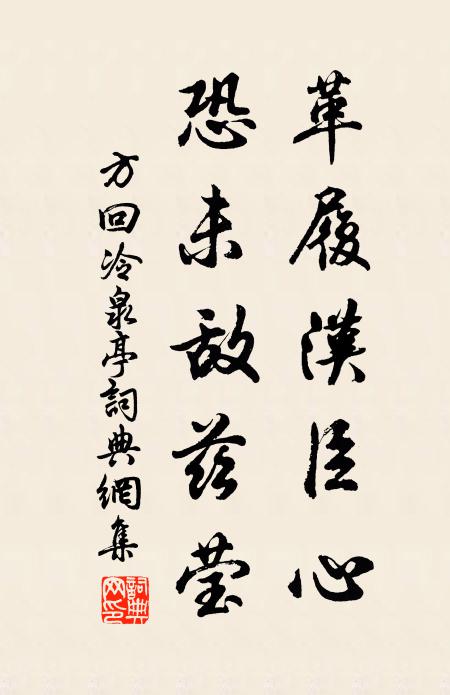 革履漢臣心
恐未敌兹莹
方回冷泉亭詞典網集
詞典网印